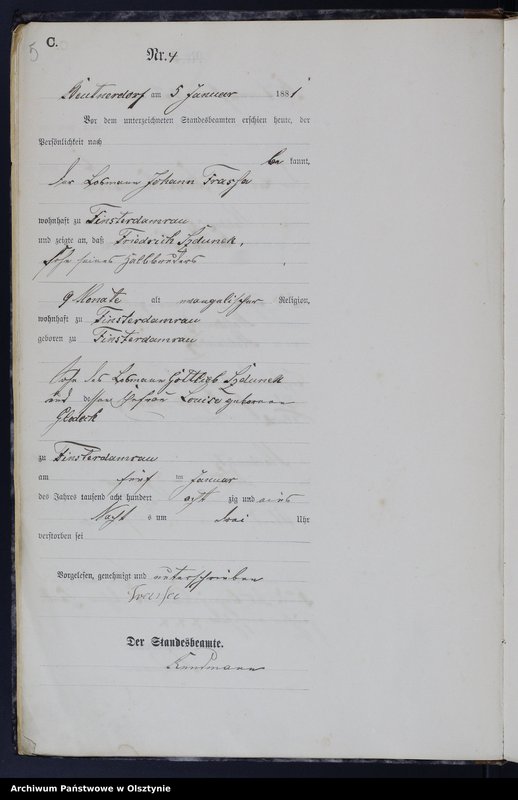 5
C.
Nr. 4
Beutnerdorf am 5 Januar 1881
Vor dem unterzeichneten Standesbeamten erschien heute, der
Persönlichkeit nach
be kannt,
der Losmann Johann Trassa
wohnhaft zu Finsterdamrau
und zeigte an, daß Friedrich Szdunek,
Sohn seines Halbbruders
9 Monate alt evangelischer Religion,
wohnhaft zu Finsterdamrau
geboren zu Finsterdamrau
Sohn des Losmann Gottlieb Szdunek
und dessen Ehefrau Louise geborenen
zu Finsterdamrau
am fünf ten Januar
des Jahres tausend acht hundert acht zig und eins
Nacht s um drei Uhr
verstorben sei
Vorgelesen, genehmigt und unterschrieben
Der Standesbeamte.
Archiwum Państwowe w Olsztynie